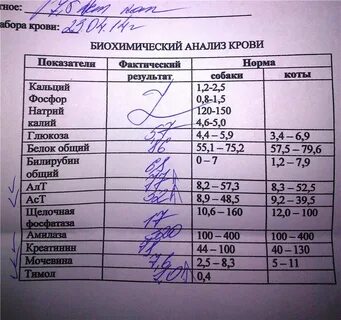 забора крови: 29.04.14г
БИОХИМИЧЕСКИЙ АНАЛИЗ КРОВИ
Показатели Фактический результат Норма
собаки коты
Кальций 1,2-2,5
Фосфор 0,8-1,5
Натрий 120-150
калий 4,6-5,0
Глюкоза 4,4 – 5,9 3,4 – 6,9
Белок общий 76 55,1 - 75,2 57,5 – 79,6
Билирубин общий 0 – 7 1,2 – 7,9
АлТ 8,2 – 57,3 8,3 – 52,5
АсТ 8,9 – 48,5 9,2 – 39,5
Щелочная фосфатаза 17 10,6 – 160 12,0 — 100
Амилаза 100 – 400 100 – 400
Креатинин 44 – 100 40 – 130
Мочевина 7,6 2,5 – 8,3 5 – 11
Тимол 0,4